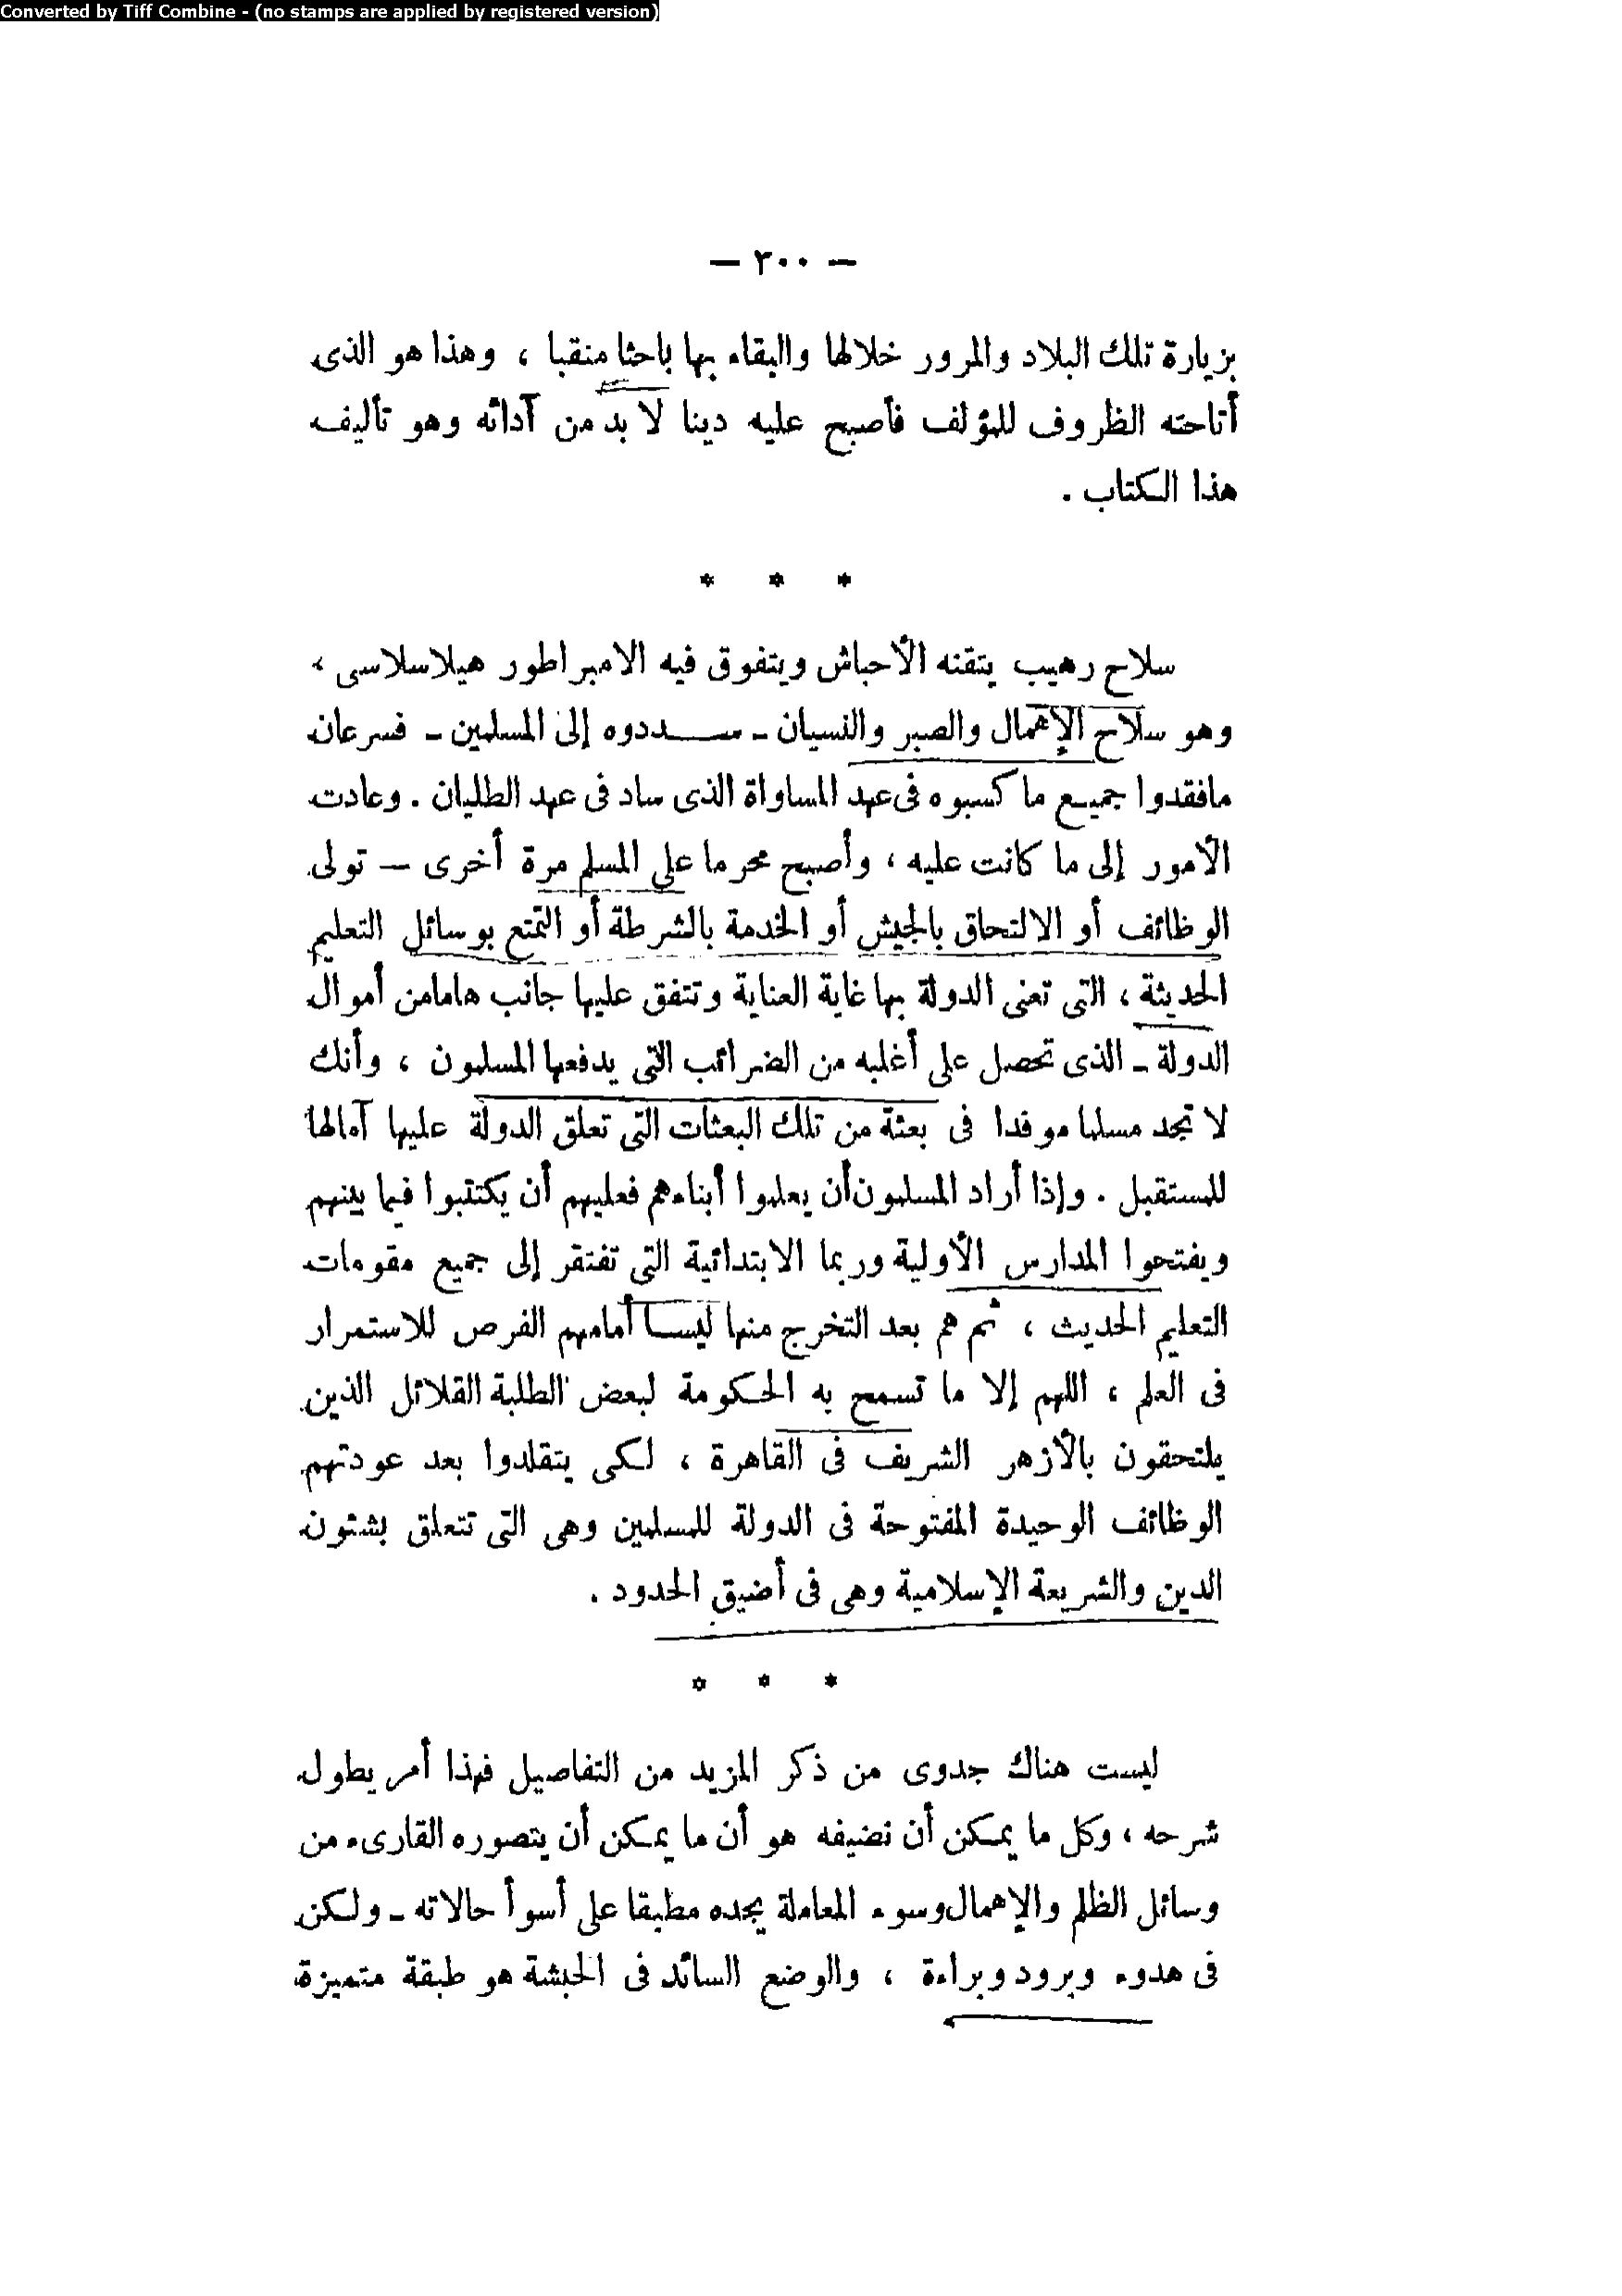 Converted by Tiff Combine - (no stamps are applied by registered version)
— ٢٠٠ —
بزيارة تلك البلاد والمرور خلالها والبقاء بها باحثا منقبا ، وهذا هو الذى
أتاحته الظروف للمؤلف فأصبح عليه دينا لا بد من آدائه وهو تأليف
هذا الكتاب .
* * *
سلاح رهيب يتقنه الأحباش ويتفوق فيه الامبراطور هيلاسلاسى ،
وهو سلاح الإهمال والصبر والنسيان - سددوه إلى المسلمين - فسرعان
مافقدوا جميع ما كسبوه فى عهد المساواة الذى ساد فى عهد الطليان . وعادت
الأمور إلى ما كانت عليه ، وأصبح محرما على المسلم مرة أخرى — تولى
الوظائف أو الالتحاق بالجيش أو الخدمة بالشرطة أو التمتع بوسائل التعليم
الحديثة ، التى تعنى الدولة بها غاية العناية وتنفق عليها جانب هامامن أموال
الدولة - الذى تحصل على أغلبه من الضرائب التى يدفعها المسلمون ، وأنك
لا تجد مسلما موفدا فى بعثة من تلك البعثات التى تعلق الدولة عليها آمالها
للمستقبل . وإذا أراد المسلمون أن يعلموا أبناءهم فعليهم أن يكتتبوا فيما بينهم
ويفتحوا المدارس الأولية وربما الابتدائية التى تفتقر إلى جميع مقومات
التعليم الحديث ، ثم هم بعد التخرج منها ليسا أمامهم الفرص للاستمرار
فى العلم ، اللهم إلا ما تسمح به الحكومة لبعض الطلبة القلائل الذين
يلتحقون بالأزهر الشريف فى القاهرة ، لكى يتقلدوا بعد عودتهم
الوظائف الوحيدة المفتوحة فى الدولة للمسلمين وهى التى تتعلق بشئون
الدين والشريعة الإسلامية وهى فى أضيق الحدود .
* * *
ليست هناك جدوى من ذكر المزيد من التفاصيل فهذا أمر يطول
شرحه ، وكل ما يمكن أن نضيفه هو أن ما يمكن أن يتصوره القارىء من
وسائل الظلم والإهمال وسوء المعاملة يجده مطبقا على أسوأ حالاته - ولكن
فى هدوء وبرود وبراءة ، والوضع السائد فى الحبشة هو طبقة متميزة